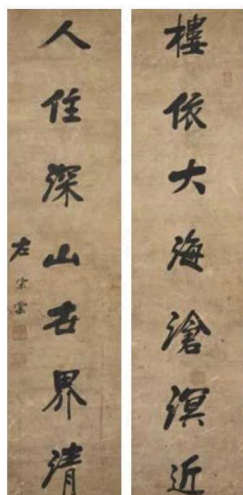 樓依大海滄溟近
人住深山世界清
左宗棠